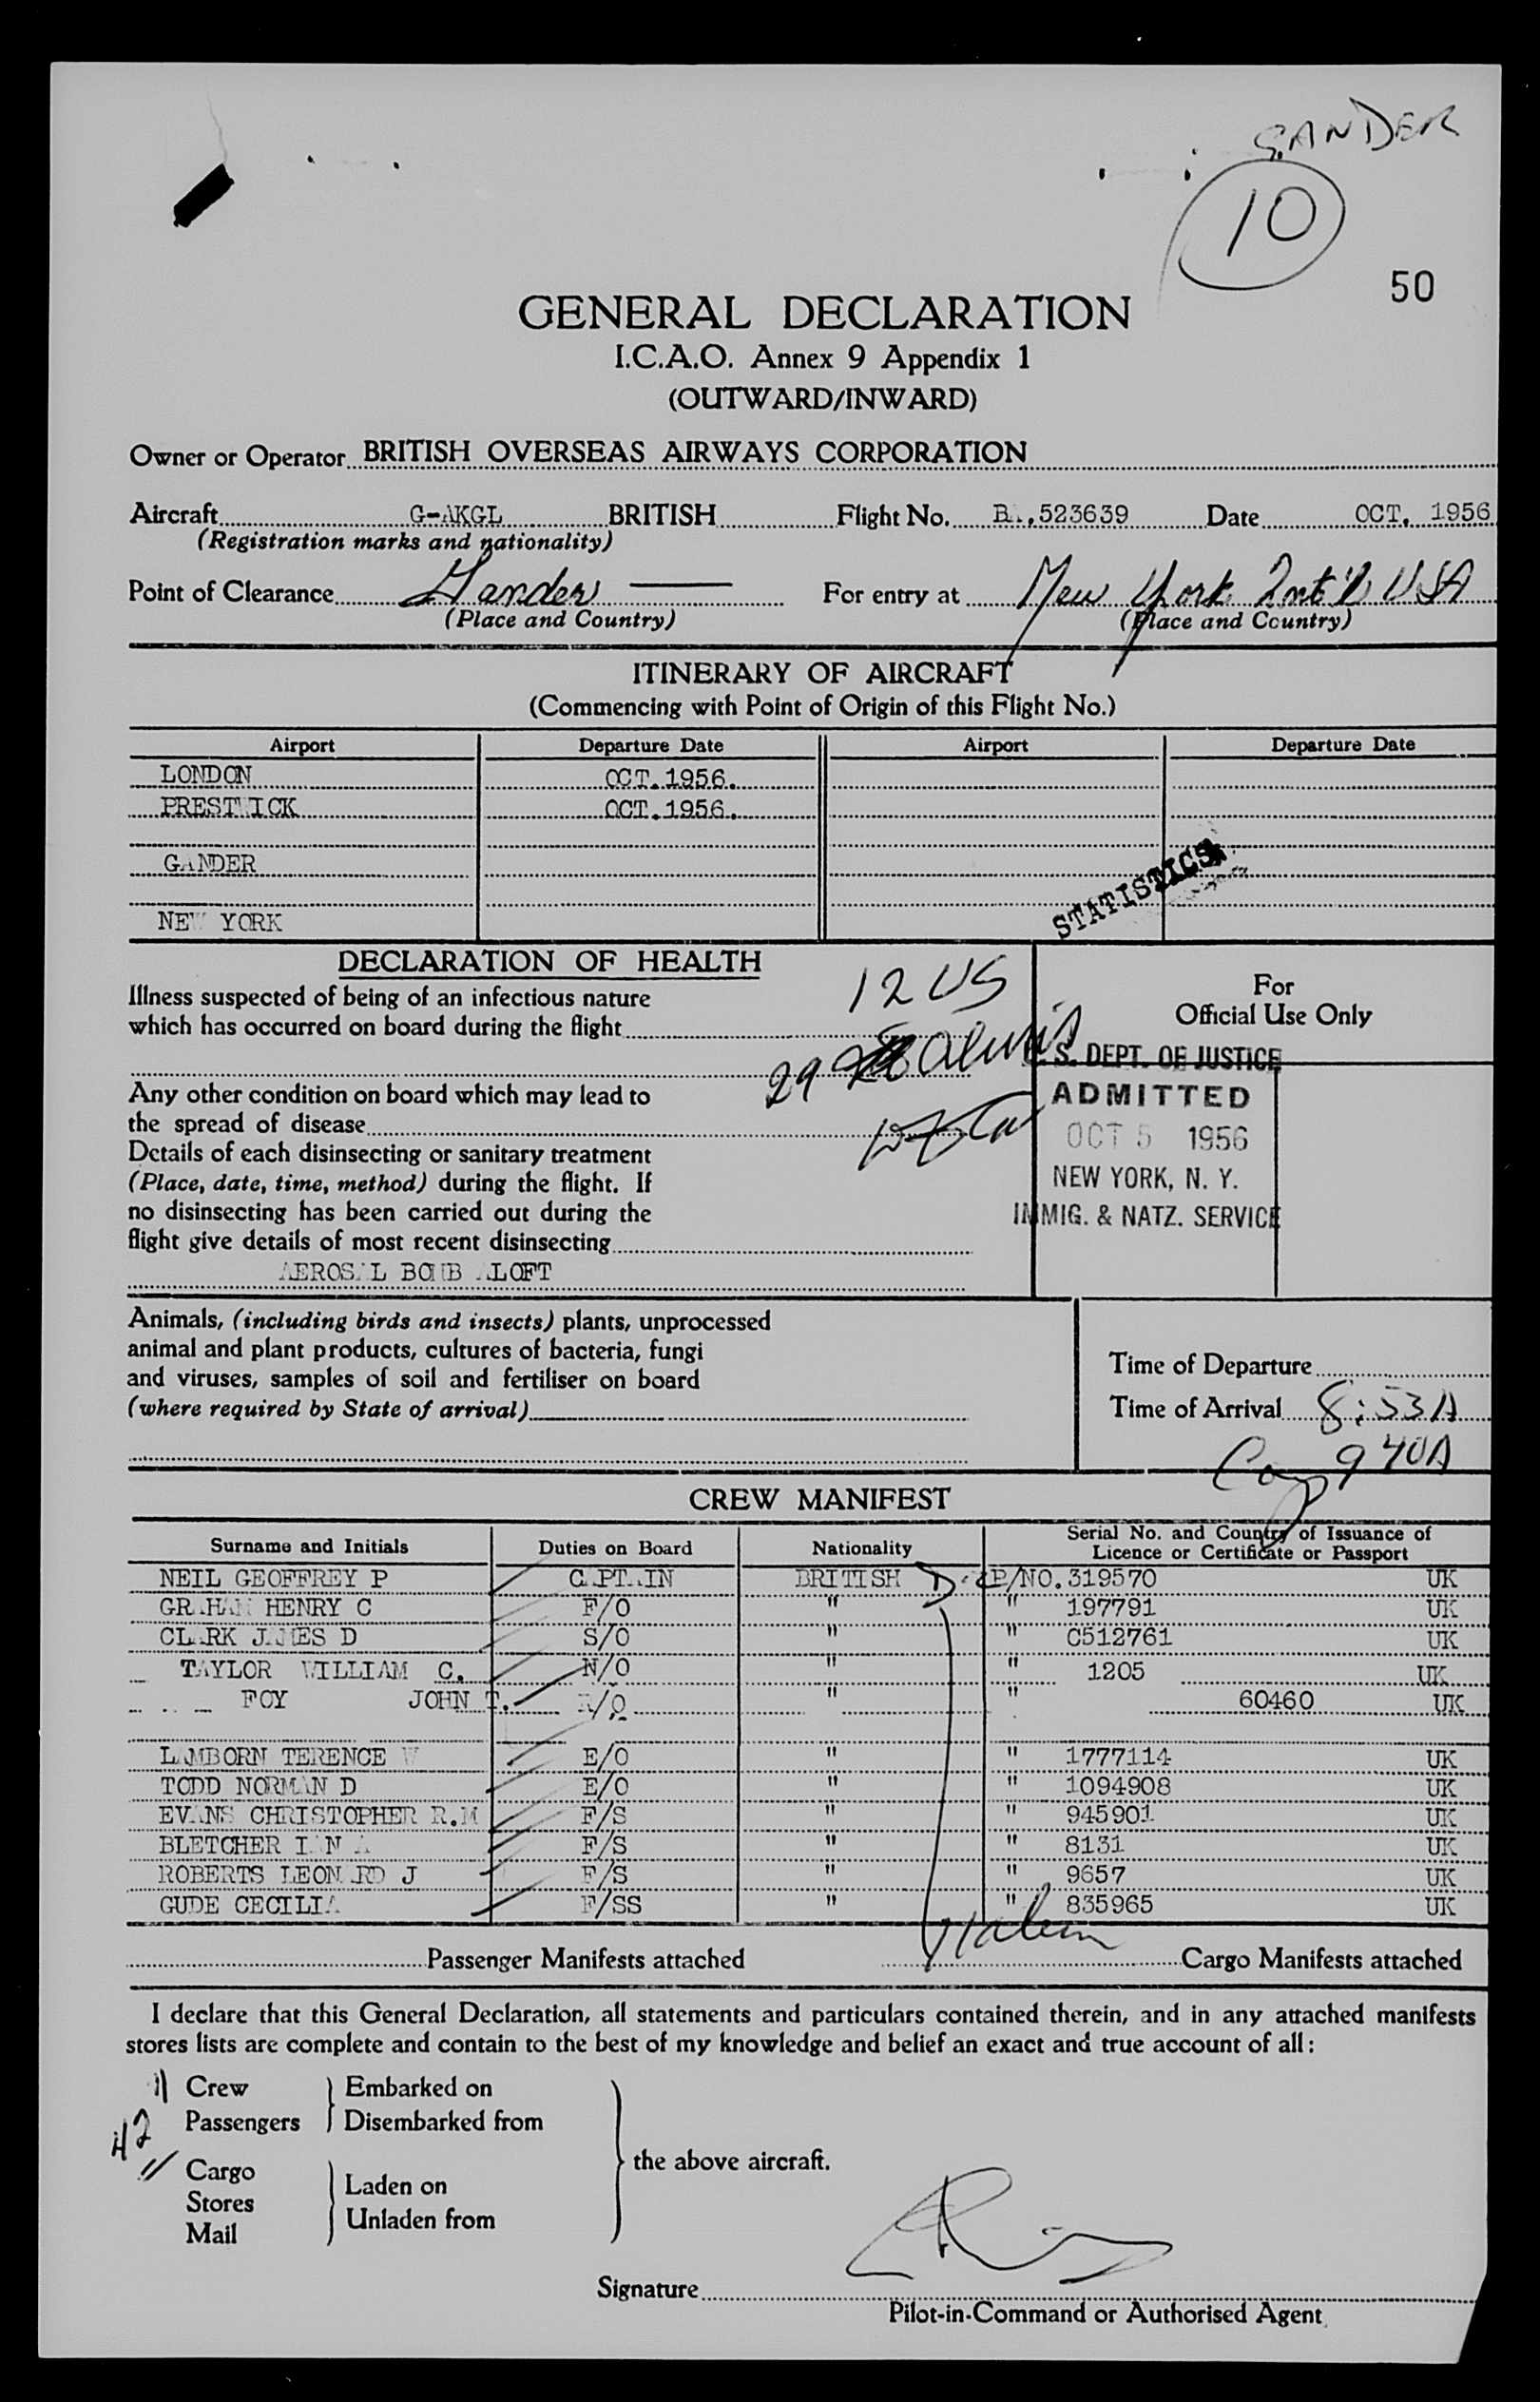 GANDER
10
50
GENERAL DECLARATION
I.C.A.O. Annex 9 Appendix 1
(OUTWARD/INWARD)
Owner or Operator BRITISH OVERSEAS AIRWAYS CORPORATION
Aircraft G-AKGL BRITISH Flight No. BA.523639 Date OCT. 1956
(Registration marks and nationality)
Point of Clearance Gander For entry at New York Int'l USA
(Place and Country) (Place and Country)
ITINERARY OF AIRCRAFT
(Commencing with Point of Origin of this Flight No.)
Airport Departure Date Airport Departure Date
LONDON OCT.1956.
PRESTWICK OCT.1956.
GANDER
NEW YORK
STATISTICS
DECLARATION OF HEALTH
12 US
For
Official Use Only
Illness suspected of being of an infectious nature
which has occurred on board during the flight
29 Aliens
S. DEPT. OF JUSTICE
ADMITTED
OCT 5 1956
NEW YORK, N. Y.
IMMIG. & NATZ. SERVICE
Any other condition on board which may lead to
the spread of disease
Details of each disinsecting or sanitary treatment
(Place, date, time, method) during the flight. If
no disinsecting has been carried out during the
flight give details of most recent disinsecting
AEROSAL BOMB ALOFT
Animals, (including birds and insects) plants, unprocessed
animal and plant products, cultures of bacteria, fungi
and viruses, samples of soil and fertiliser on board
(where required by State of arrival)
Time of Departure
Time of Arrival 8:53A
940A
CREW MANIFEST
Surname and Initials Duties on Board Nationality Serial No. and Country of Issuance of
Licence or Certificate or Passport
NEIL GEOFFREY P CAPTAIN BRITISH P/NO.319570 UK
GRAHAM HENRY C F/O " " 197791 UK
CLARK JAMES D S/O " " C512761 UK
TAYLOR WILLIAM C. N/O " " 1205 UK
FOY JOHN T. R/O " " 60460 UK
LAMBORN TERENCE W E/O " " 1777114 UK
TODD NORMAN D E/O " " 1094908 UK
EVANS CHRISTOPHER R.M F/S " " 945901 UK
BLETCHER IAN A F/S " " 8131 UK
ROBERTS LEONARD J F/S " " 9657 UK
GUDE CECILIA F/SS " " 835965 UK
Passenger Manifests attached Cargo Manifests attached
I declare that this General Declaration, all statements and particulars contained therein, and in any attached manifests
stores lists are complete and contain to the best of my knowledge and belief an exact and true account of all:
11 Crew Embarked on
42 Passengers Disembarked from
the above aircraft.
Cargo Laden on
Stores Unladen from
Mail
Signature
Pilot-in-Command or Authorised Agent